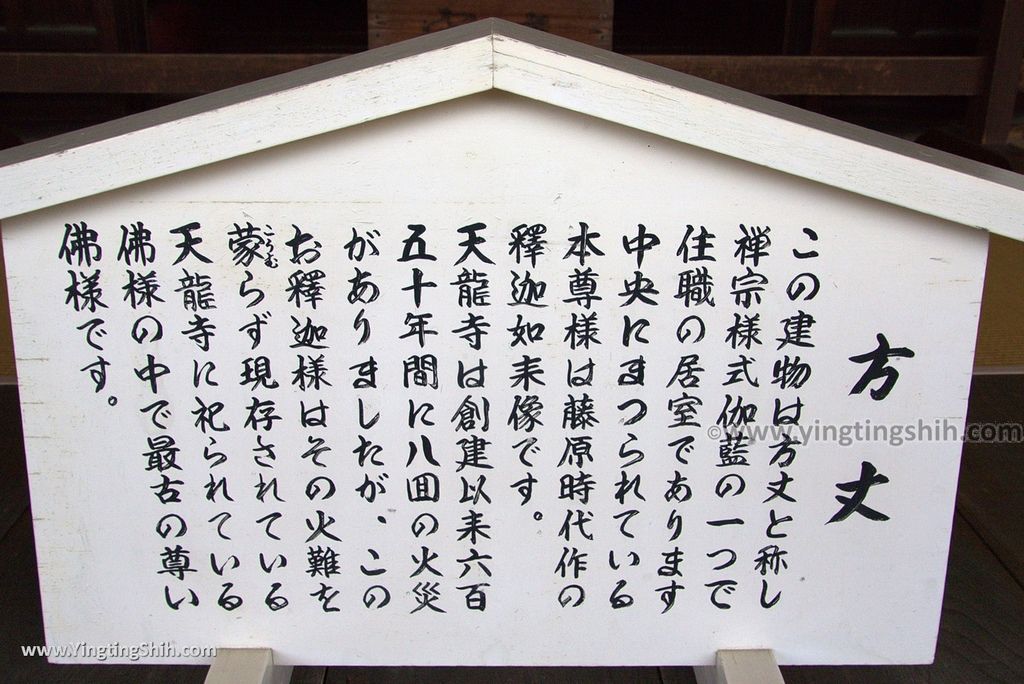 方丈
この建物は方丈と称し
禅宗様式伽藍の一つで
住職の居室であります
中央にまつられている
本尊様は藤原時代作の
釋迦如来像です。
天龍寺は創建以来六百
五十年間に八回の火災
がありましたが、この
お釋迦様はその火難を
蒙らず現存されている
こうむ
天龍寺に祀られている
佛様の中で最古の尊い
佛様です。
©www.yingtingshih.com
www.YingtingShih.com